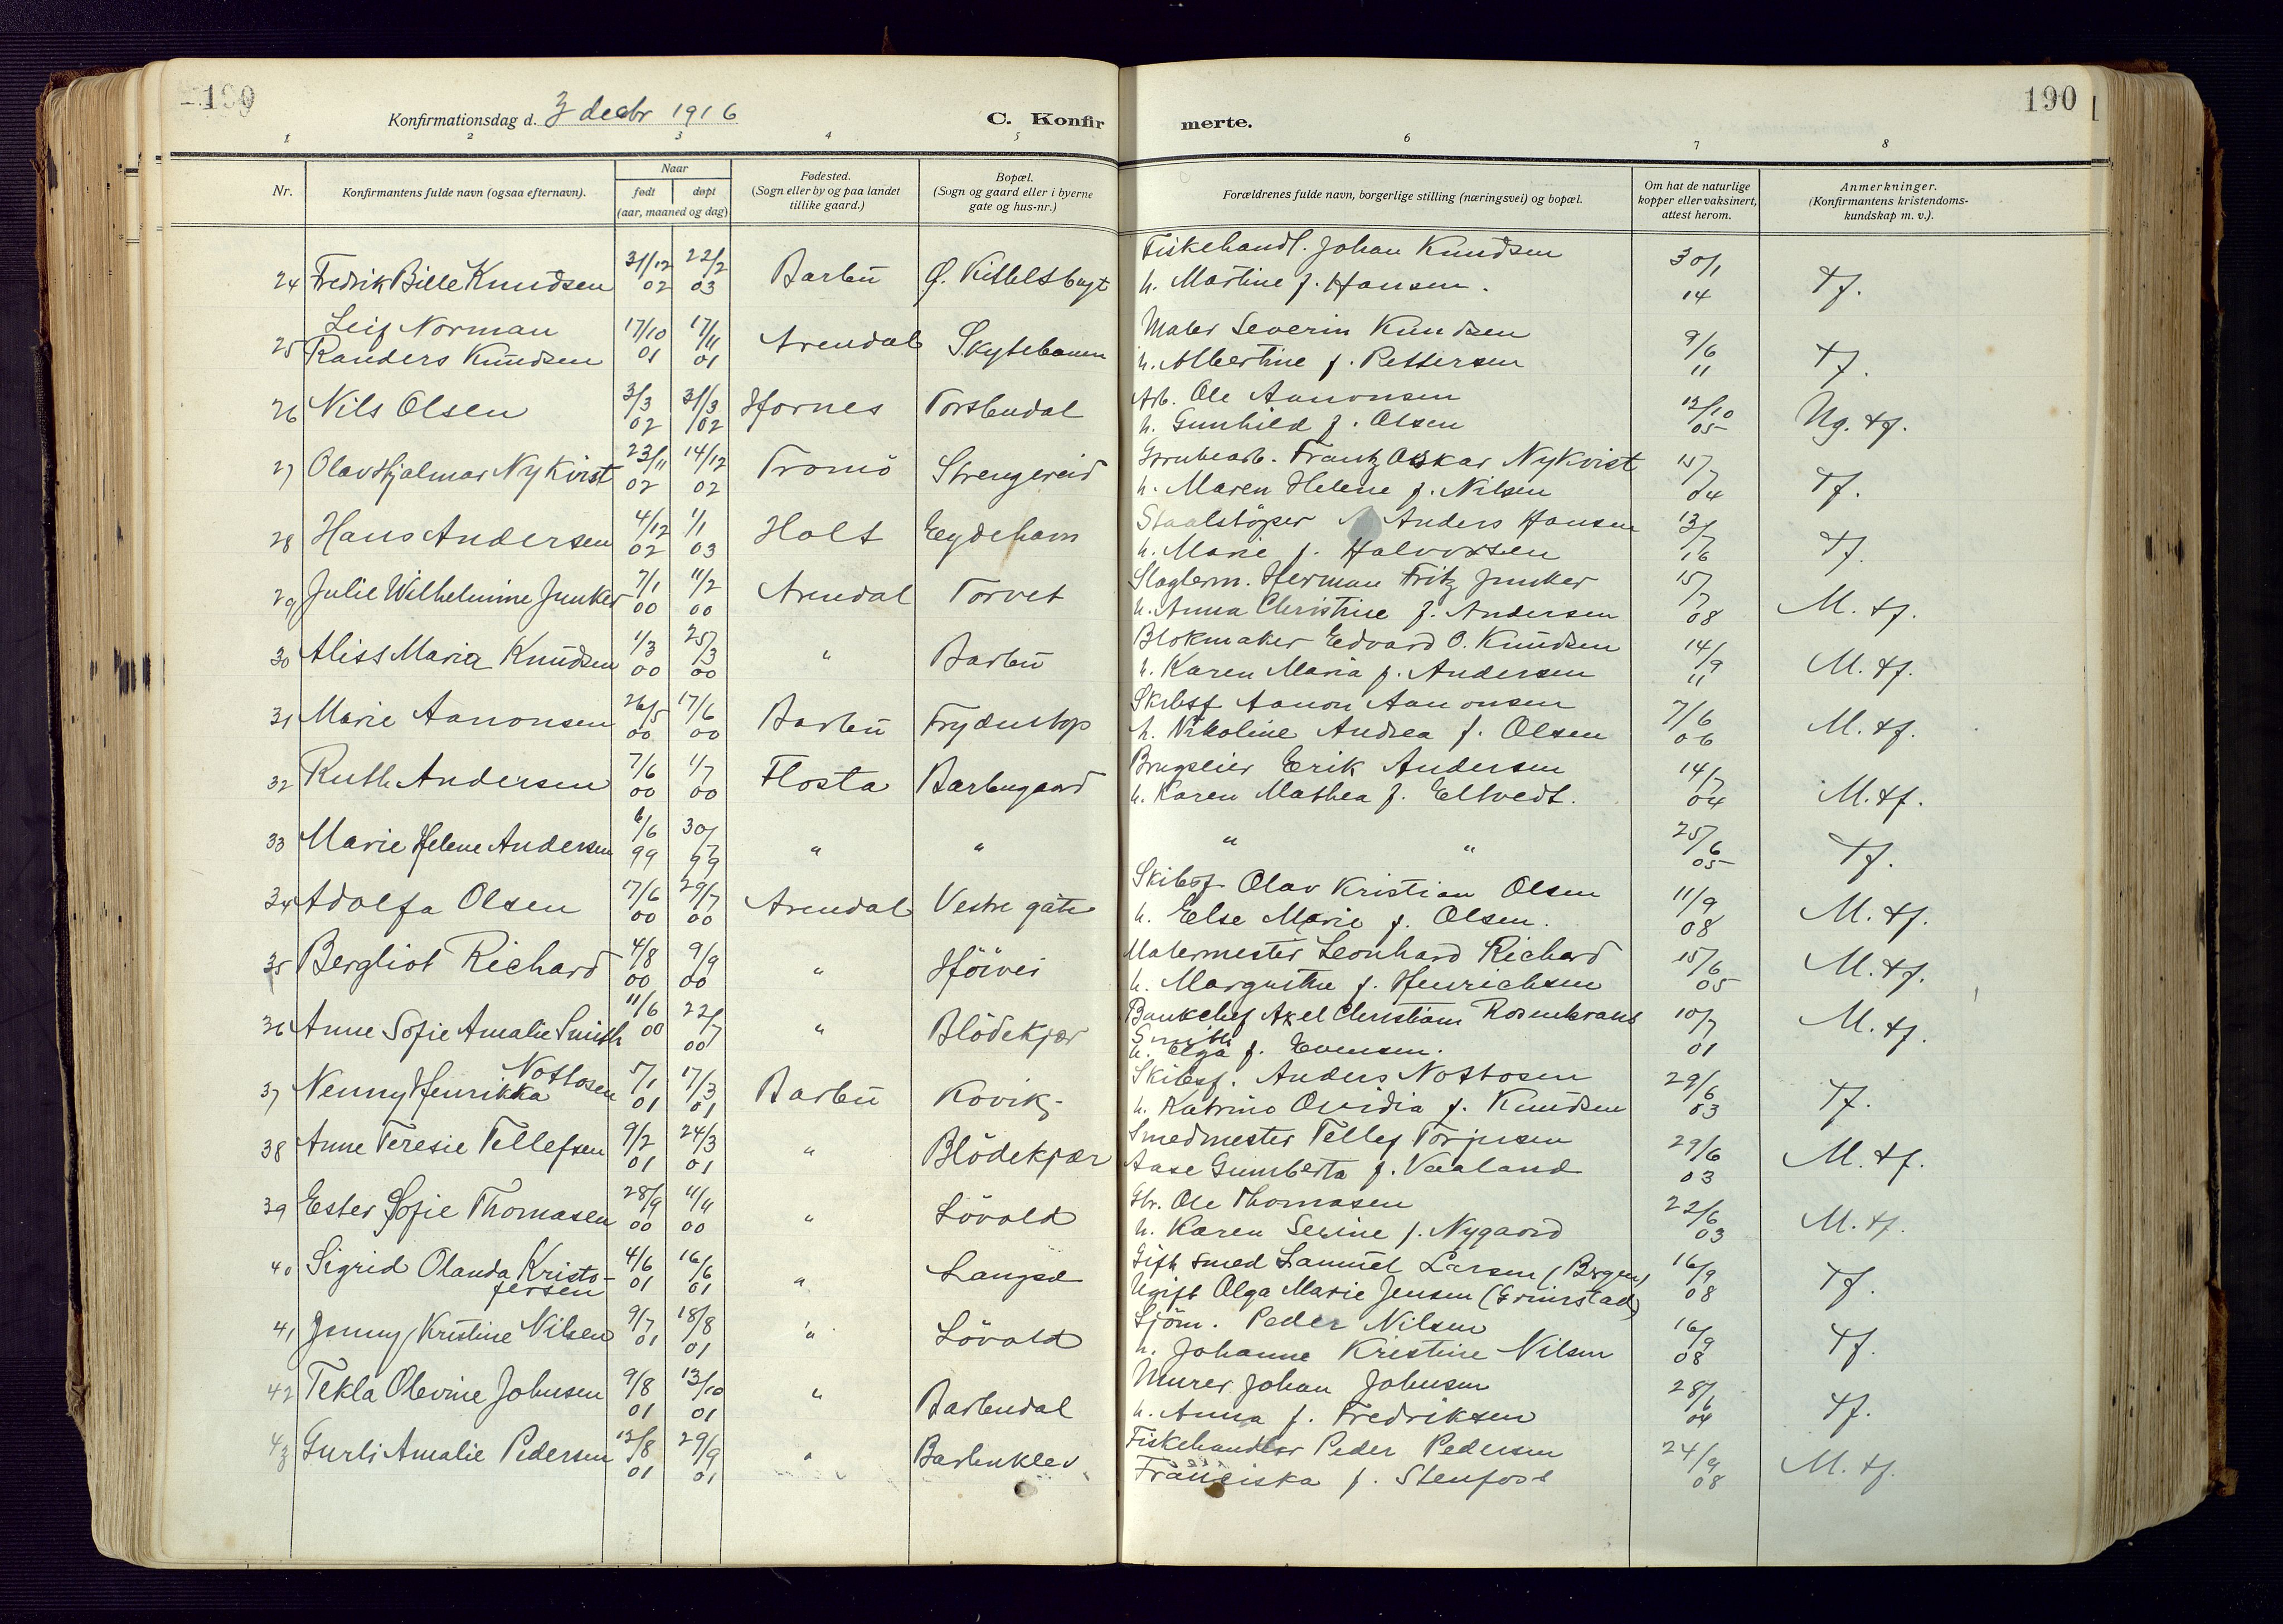 190
190
Konfirmationsdag d. 3 decbr 1916
C. Konfirmerte.
1 2 3 4 5 6 7 8
Nr.
Konfirmantens fulde navn (ogsaa efternavn).
Naar
født døpt
(aar, maaned og dag)
Fødested.
(Sogn eller by og paa landet
tillike gaard.)
Bopæl.
(Sogn og gaard eller i byerne
gate og hus-nr.)
Forældrenes fulde navn, borgerlige stilling (næringsvei) og bopæl.
Om hat de naturlige
kopper eller vaksinert,
attest herom.
Anmerkninger.
(Konfirmantens kristendoms-
kundskap m. v.).
24 Fredrik Bille Knudsen 31/12 02 22/2 03 Barbu Ø. Kittelsbugt
Fiskehandl. Johan Knudsen
h. Martine f. Hansen. 30/1 14 Tf.
25 Leif Norman
Randers Knudsen 17/10 01 17/11 01 Arendal Skytebanen
Maler Severin Knudsen
h. Albertine f. Pettersen 9/6 11 Tf.
26 Nils Olsen 3/3 02 31/3 02 Hornes Torsbudal
Arb. Ole Aanonsen
h. Gunhild f. Olsen 12/10 05 Ng. tf.
27 Olav Hjalmar Nykvist 23/11 02 14/12 02 Tromö Strengereid
Grubearb. Frantz Oskar Nykvist
h. Maren Helene f. Nilsen 15/7 04 Tf.
28 Hans Andersen 4/12 02 1/1 03 Holt Eydehavn
Staalstöper Anders Hansen
h. Marie f. Halvorsen 13/7 16 Tf.
29 Julie Wilhelmine Junker 7/1 00 11/2 00 Arendal Torvet
Slagterm. Herman Fritz Junker
h. Anna Christine f. Andersen 15/7 08 M. tf.
30 Aliss Maria Knudsen 1/3 00 25/3 00 " Barbu
Blokmaker Edvard O. Knudsen
h. Karen Maria f. Andersen 14/9 11 M. tf.
31 Marie Aanonsen 26/5 00 17/6 00 Barbu Frydenstop
Skibsf Aanon Aanonsen
h. Nikoline Andrea f. Olsen 7/6 06 M. tf.
32 Ruth Andersen 7/6 00 1/7 00 Flosta Barbugaard
Brugseier Erik Andersen
h. Karen Mathea f. Eltvedt. 14/7 04 M. tf.
33 Marie Helene Andersen 6/6 99 30/7 99 " "
" " 25/6 05 Tf.
34 Adolfa Olsen 17/6 00 29/7 00 Arendal Vestre gate
Skibsf Olav Kristian Olsen
h. Else Marie f. Olsen. 11/9 08 M. tf.
35 Bergliot Richard 4/8 00 9/9 00 " Höivei
Malermester Leonhard Richard
h. Margrethe f. Henrichsen 15/6 05 M. tf.
36 Anne Sofie Amalie Smith 11/6 00 22/7 00 " Blödekjær
Bankchef Axel Christian Rosenkrans
Smith
h. Elga f. Evensen. 10/7 01 M. tf.
37 Nenny Henrikka Nottosen 5/1 01 17/3 01 Barbu Kovik
Skibsf. Anders Nottosen
h. Katrine Ovidia f. Knudsen 29/6 03 Tf.
38 Anne Teresie Tellefsen 9/2 01 24/3 01 " Blödekjær
Smedmester Tellef Torjusen
Aase Gumberta f. Vaaland 29/6 03 M. tf.
39 Ester Sofie Thomasen 28/9 00 11/11 00 " Lövold
Gbr. Ole Thomasen
h. Karen Serine f. Nygaard 22/6 03 M. tf.
40 Sigrid Olanda Kristo-
fersen 4/6 01 16/6 01 " Langsæ
Gift smed Samuel Larsen (Bergen)
Ugift Olga Marie Jensen (Grimstad) 16/9 08 Tf.
41 Jenny Kristine Nilsen 9/7 01 18/8 01 " Lövold
Sjöm. Peder Nilsen
h. Johanne Kristine Nilsen 16/9 08 Tf.
42 Tekla Olevine Johnsen 9/8 01 13/10 01 " Barbudal
Murer Johan Johnsen
h. Anna f. Fredriksen 28/6 04 Tf.
43 Gurli Amalie Pedersen 12/8 01 29/9 01 " Barbuklev
Fiskehandler Peder Pedersen
Franciska f. Stenfoss 24/9 08 M. tf.